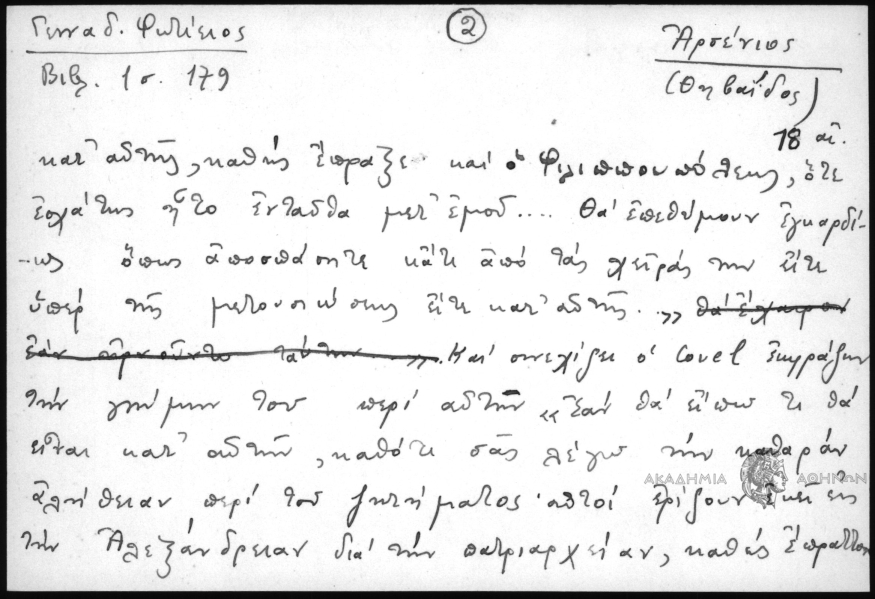 Γενναδ. Φωτίειος
②
Ἀρσένιος
Βιβλ. 1 σ. 179
(Θηβαΐδος)
18 αἰ.
κατ' αὐτῆς, καθὼς ἔπραξε καὶ ὁ Φιλιππουπόλεως, ὅτε
ἐσχάτως ἦτο ἐνταῦθα μετ' ἐμοῦ.... Θὰ ἐπεθύμουν ἐγκαρδί-
-ως ὅπως ἀποσπάσητε κἄτι ἀπὸ τὰς χεῖράς των εἴτε
ὑπὲρ τῆς μετουσιώσεως εἴτε κατ' αὐτῆς.» θὰ ἔχαιρον
ἐὰν ἠρνοῦντο ταύτην ». Καὶ συνεχίζει ὁ Covel ἐκφράζων
τὴν γνώμην του περὶ αὐτῶν «Ἐὰν θὰ εἴπω τι θὰ
εἶναι κατ' αὐτῶν, καθότι σᾶς λέγω τὴν καθαρὰν
ἀλήθειαν περὶ τοῦ ζητήματος· αὐτοὶ ἐρίζουν ἐκεῖ εἰς
τὴν Ἀλεξάνδρειαν διὰ τὴν πατριαρχείαν, καθὼς ἔπραττον
ΑΚΑΔΗΜΙΑ ΑΘΗΝΩΝ